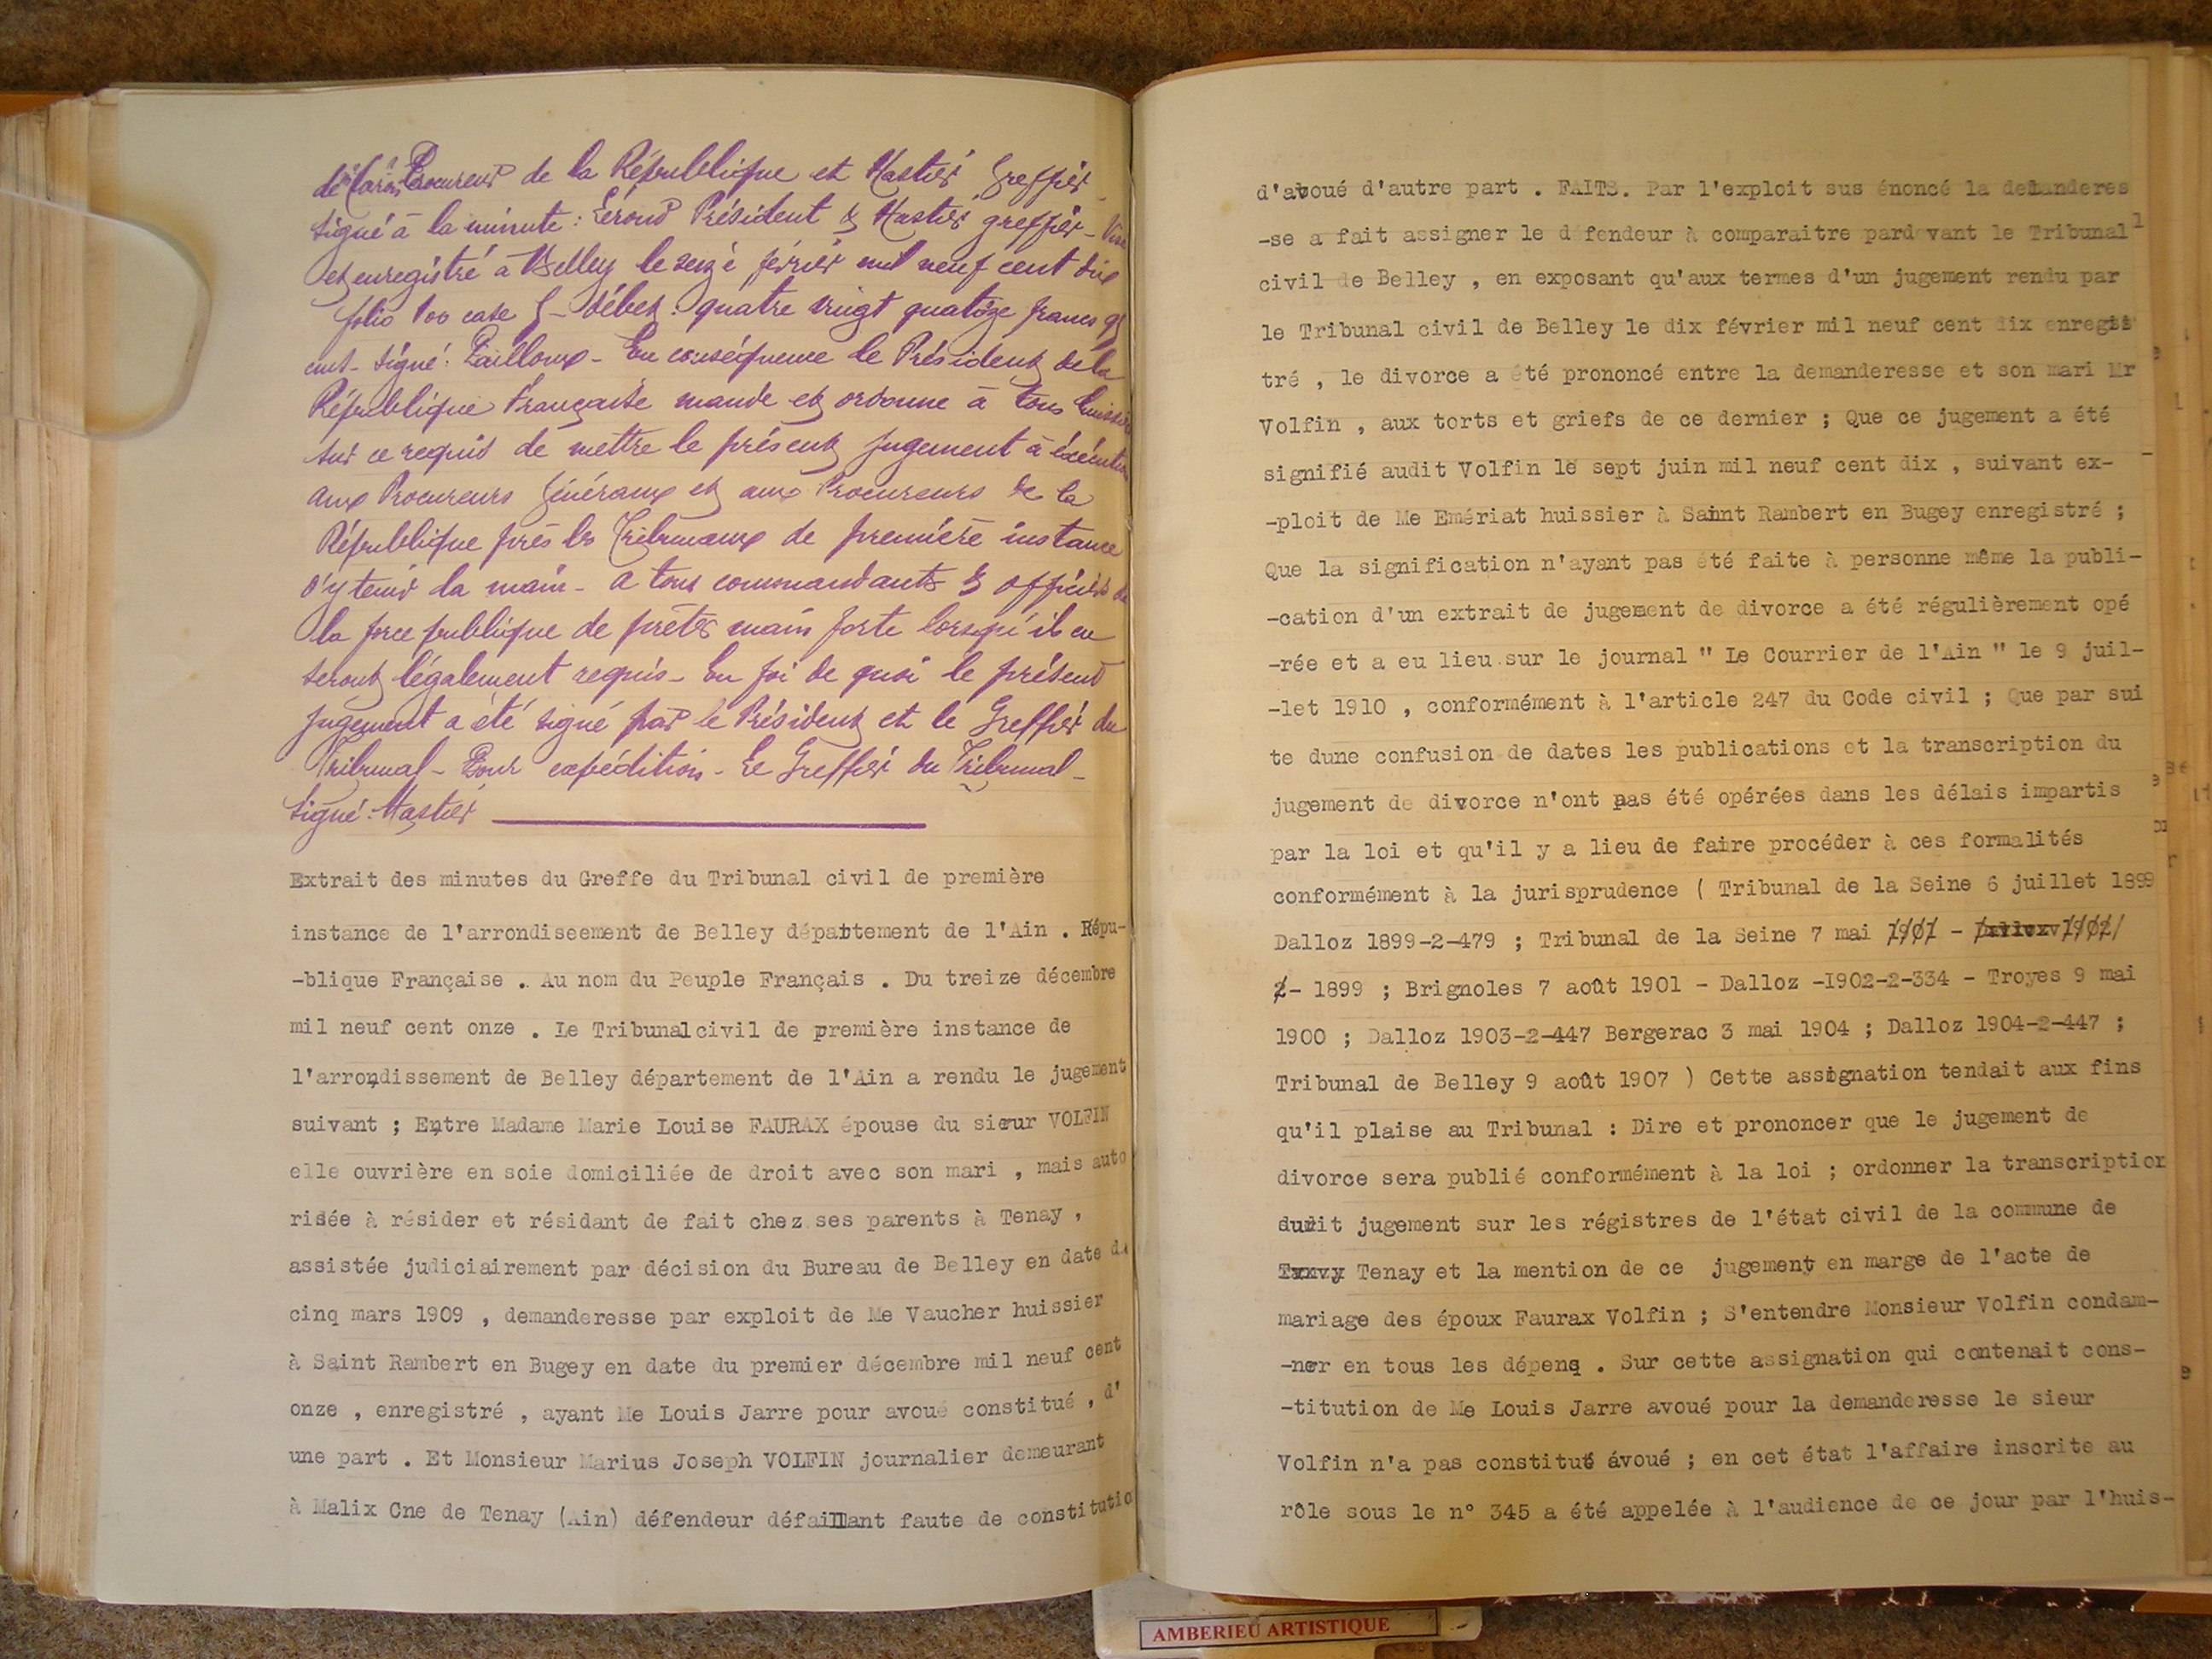 Procureur de la République et Hastier Greffier
signé à la minute : Président & Hastier greffier - Visé
et enregistré à Belley le seize février mil neuf cent dix
folio 100 case - débet : quatre vingt quatorze francs
signé : - En conséquence le Président de la
République Française mande et ordonne à tous huissiers
sur ce requis de mettre le présent jugement à éxécution
aux Procureurs Généraux et aux Procureurs de la
République près les Tribunaux de première instance
d'y tenir la main - à tous commandants & officiers de
la force publique de prêter main forte lorsqu'ils en
seront légalement requis - En foi de quoi le présent
jugement a été signé par le Président et le Greffier du
Tribunal - Pour expédition - Le Greffier du Tribunal -
Signé : Hastier
Extrait des minutes du Greffe du Tribunal civil de première
instance de l'arrondiseement de Belley département de l'Ain . Répu-
-blique Française . Au nom du Peuple Français . Du treize décembre
mil neuf cent onze . Le Tribunal civil de première instance de
l'arrondissement de Belley département de l'Ain a rendu le jugement
suivant ; Entre Madame Marie Louise FAURAX épouse du sieur VOLFIN
elle ouvrière en soie domiciliée de droit avec son mari , mais auto
risée à résider et résidant de fait chez ses parents à Tenay ,
assistée judiciairement par décision du Bureau de Belley en date du
cinq mars 1909 , demanderesse par exploit de Me Vaucher huissier
à Saint Rambert en Bugey en date du premier décembre mil neuf cent
onze , enregistré , ayant Me Louis Jarre pour avoué constitué , d'
une part . Et Monsieur Marius Joseph VOLFIN journalier demeurant
à Malix Cne de Tenay (Ain) défendeur défaillant faute de constitutio
d'avoué d'autre part . FAITS. Par l'exploit sus énoncé la demanderes
-se a fait assigner le défendeur à comparaitre pardevant le Tribunal
civil de Belley , en exposant qu'aux termes d'un jugement rendu par
le Tribunal civil de Belley le dix février mil neuf cent dix enregis
tré , le divorce a été prononcé entre la demanderesse et son mari Mr
Volfin , aux torts et griefs de ce dernier ; Que ce jugement a été
signifié audit Volfin le sept juin mil neuf cent dix , suivant ex-
-ploit de Me Emériat huissier à Saint Rambert en Bugey enregistré ;
Que la signification n'ayant pas été faite à personne même la publi-
-cation d'un extrait de jugement de divorce a été régulièrement opé
-rée et a eu lieu sur le journal " Le Courrier de l'Ain " le 9 juil-
-let 1910 , conformément à l'article 247 du Code civil ; Que par sui
te dune confusion de dates les publications et la transcription du
jugement de divorce n'ont pas été opérées dans les délais impartis
par la loi et qu'il y a lieu de faire procéder à ces formalités
conformément à la jurisprudence ( Tribunal de la Seine 6 juillet 1899
Dalloz 1899-2-479 ; Tribunal de la Seine 7 mai 1901 - 1902
2- 1899 ; Brignoles 7 août 1901 - Dalloz -1902-2-334 - Troyes 9 mai
1900 ; Dalloz 1903-2-447 Bergerac 3 mai 1904 ; Dalloz 1904-2-447 ;
Tribunal de Belley 9 août 1907 ) Cette assignation tendait aux fins
qu'il plaise au Tribunal : Dire et prononcer que le jugement de
divorce sera publié conformément à la loi ; ordonner la transcription
dudit jugement sur les régistres de l'état civil de la commune de
Tenay et la mention de ce jugement en marge de l'acte de
mariage des époux Faurax Volfin ; S'entendre Monsieur Volfin condam-
-ner en tous les dépens . Sur cette assignation qui contenait cons-
-titution de Me Louis Jarre avoué pour la demanderesse le sieur
Volfin n'a pas constitué avoué ; en cet état l'affaire inscrite au
rôle sous le n° 345 a été appelée à l'audience de ce jour par l'huis-
AMBERIEU ARTISTIQUE